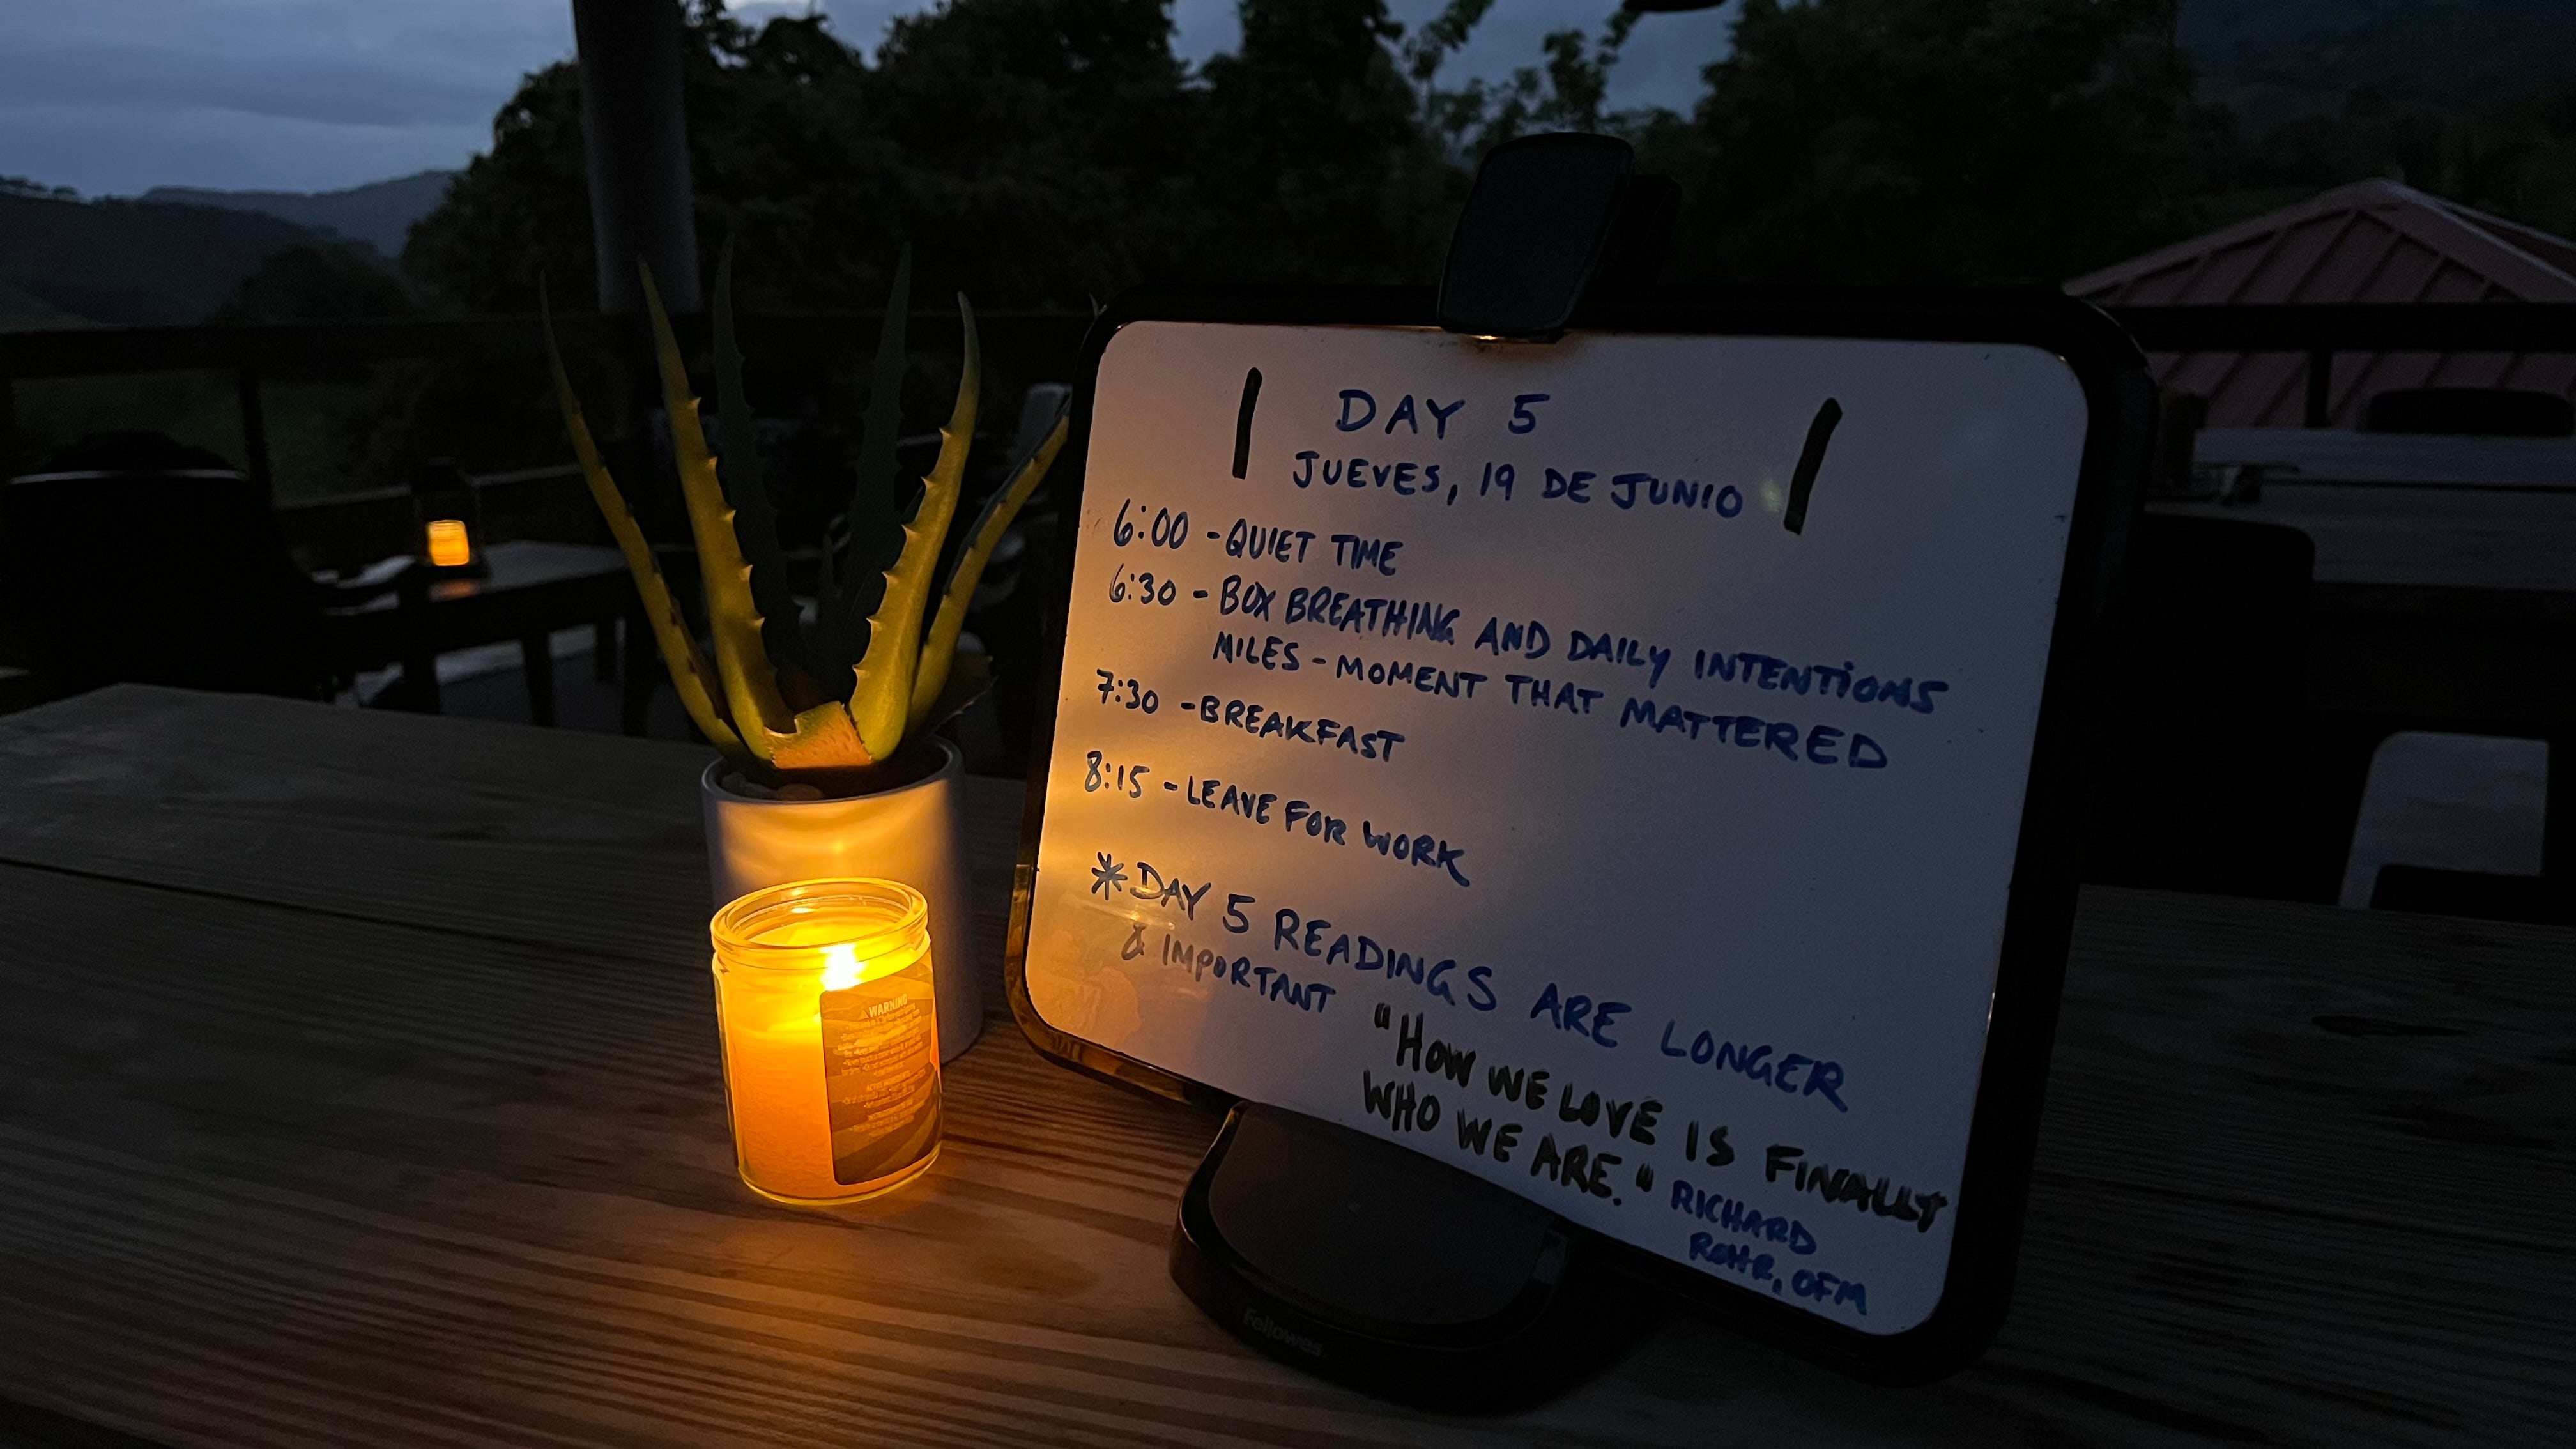 DAY 5
JUEVES, 19 DE JUNIO
6:00 - QUIET TIME
6:30 - BOX BREATHING AND DAILY INTENTIONS
MILES - MOMENT THAT MATTERED
7:30 - BREAKFAST
8:15 - LEAVE FOR WORK
* DAY 5 READINGS ARE LONGER
& IMPORTANT
"HOW WE LOVE IS FINALLY
WHO WE ARE." RICHARD
ROHR, OFM
WARNING
Fellowes